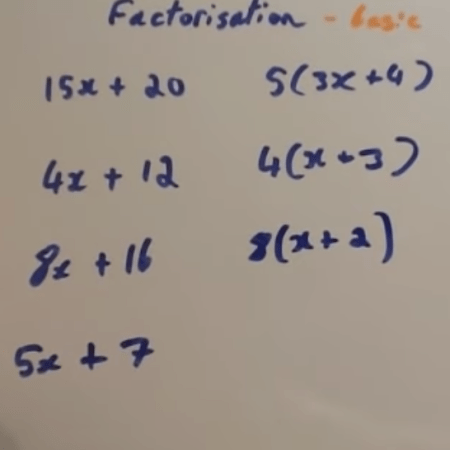 Factorisation - basic
15x + 20 5(3x+4)
4x + 12 4(x+3)
8x + 16 8(x+2)
5x + 7